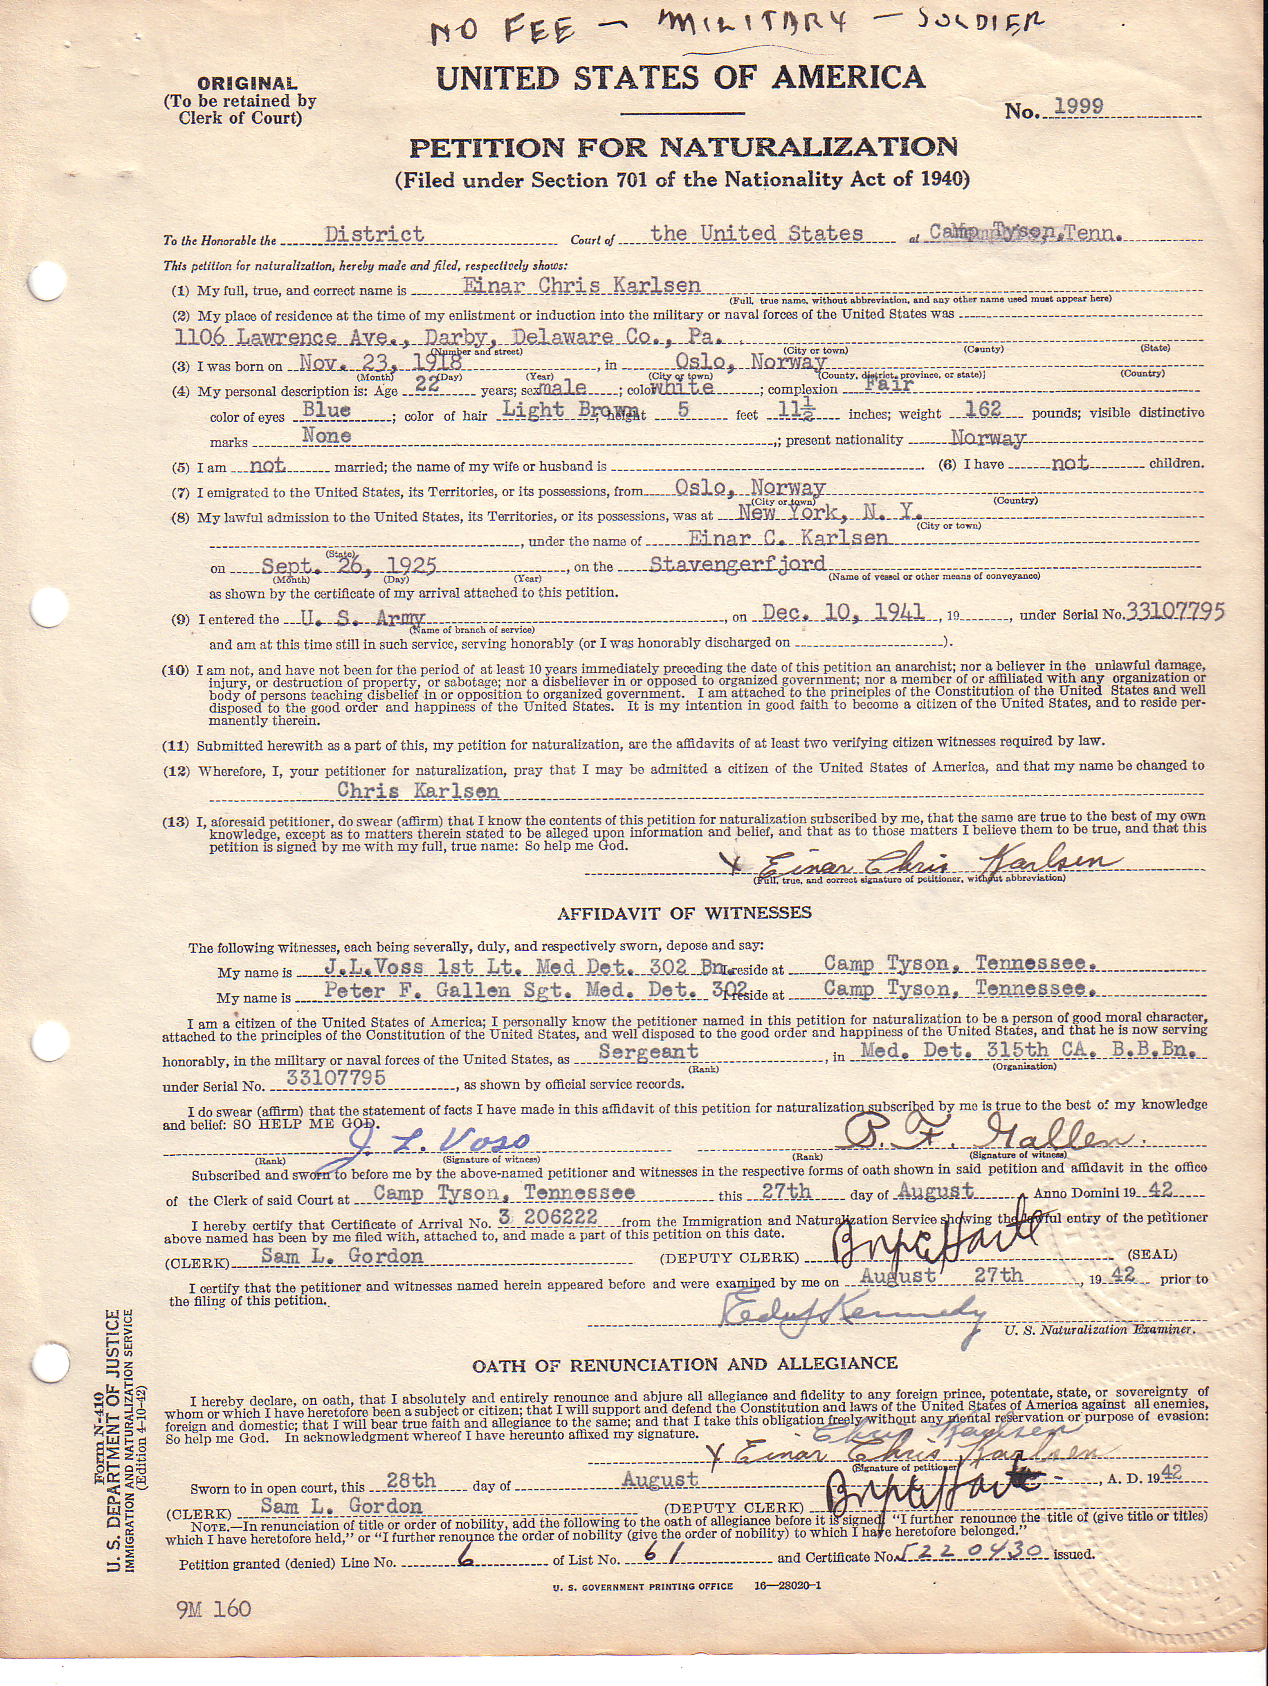 NO FEE — MILITARY — SOLDIER
ORIGINAL
(To be retained by
Clerk of Court)
UNITED STATES OF AMERICA
No. 1999
PETITION FOR NATURALIZATION
(Filed under Section 701 of the Nationality Act of 1940)
To the Honorable the District Court of the United States at Camp Tyson, Tenn.
This petition for naturalization, hereby made and filed, respectively shows:
(1) My full, true, and correct name is Einar Chris Karlsen
(Full, true name, without abbreviation, and any other name used must appear here)
(2) My place of residence at the time of my enlistment or induction into the military or naval forces of the United States was
1106 Lawrence Ave., Darby, Delaware Co., Pa.
(Number and street) (City or town) (County) (State)
(3) I was born on Nov. 23, 1918, in Oslo, Norway
(Month) (Day) (Year) (City or town) (County, district, province, or state) (Country)
(4) My personal description is: Age 22 years; sex male; color white; complexion Fair
color of eyes Blue; color of hair Light Brown; height 5 feet 11½ inches; weight 162 pounds; visible distinctive
marks None; present nationality Norway
(5) I am not married; the name of my wife or husband is . (6) I have not children.
(7) I emigrated to the United States, its Territories, or its possessions, from Oslo, Norway
(City or town) (Country)
(8) My lawful admission to the United States, its Territories, or its possessions, was at New York, N. Y.
(City or town)
, under the name of Einar C. Karlsen
(State)
on Sept. 26, 1925, on the Stavengerfjord
(Month) (Day) (Year) (Name of vessel or other means of conveyance)
as shown by the certificate of my arrival attached to this petition.
(9) I entered the U. S. Army, on Dec. 10, 1941, 19, under Serial No. 33107795
(Name of branch of service)
and am at this time still in such service, serving honorably (or I was honorably discharged on ).
(10) I am not, and have not been for the period of at least 10 years immediately preceding the date of this petition an anarchist; nor a believer in the unlawful damage,
injury, or destruction of property, or sabotage; nor a disbeliever in or opposed to organized government; nor a member of or affiliated with any organization or
body of persons teaching disbelief in or opposition to organized government. I am attached to the principles of the Constitution of the United States and well
disposed to the good order and happiness of the United States. It is my intention in good faith to become a citizen of the United States, and to reside per-
manently therein.
(11) Submitted herewith as a part of this, my petition for naturalization, are the affidavits of at least two verifying citizen witnesses required by law.
(12) Wherefore, I, your petitioner for naturalization, pray that I may be admitted a citizen of the United States of America, and that my name be changed to
Chris Karlsen
(13) I, aforesaid petitioner, do swear (affirm) that I know the contents of this petition for naturalization subscribed by me, that the same are true to the best of my own
knowledge, except as to matters therein stated to be alleged upon information and belief, and that as to those matters I believe them to be true, and that this
petition is signed by me with my full, true name: So help me God.
X Einar Chris Karlsen
(Full, true, and correct signature of petitioner, without abbreviation)
AFFIDAVIT OF WITNESSES
The following witnesses, each being severally, duly, and respectively sworn, depose and say:
My name is J.L.Voss 1st Lt. Med Det. 302 Bn. I reside at Camp Tyson, Tennessee.
My name is Peter F. Gallen Sgt. Med. Det. 302 I reside at Camp Tyson, Tennessee.
I am a citizen of the United States of America; I personally know the petitioner named in this petition for naturalization to be a person of good moral character,
attached to the principles of the Constitution of the United States, and well disposed to the good order and happiness of the United States, and that he is now serving
honorably, in the military or naval forces of the United States, as Sergeant, in Med. Det. 315th CA. B.B.Bn.
(Rank) (Organization)
under Serial No. 33107795, as shown by official service records.
I do swear (affirm) that the statement of facts I have made in this affidavit of this petition for naturalization subscribed by me is true to the best of my knowledge
and belief: SO HELP ME GOD.
J L. Voss P. F. Gallen.
(Rank) (Signature of witness) (Rank) (Signature of witness)
Subscribed and sworn to before me by the above-named petitioner and witnesses in the respective forms of oath shown in said petition and affidavit in the office
of the Clerk of said Court at Camp Tyson, Tennessee this 27th day of August, Anno Domini 19 42
I hereby certify that Certificate of Arrival No. 3 206222 from the Immigration and Naturalization Service showing the lawful entry of the petitioner
above named has been by me filed with, attached to, and made a part of this petition on this date.
(CLERK) Sam L. Gordon (DEPUTY CLERK) (SEAL)
I certify that the petitioner and witnesses named herein appeared before and were examined by me on August 27th, 19 42 prior to
the filing of this petition.
Kennedy
U. S. Naturalization Examiner.
OATH OF RENUNCIATION AND ALLEGIANCE
I hereby declare, on oath, that I absolutely and entirely renounce and abjure all allegiance and fidelity to any foreign prince, potentate, state, or sovereignty of
whom or which I have heretofore been a subject or citizen; that I will support and defend the Constitution and laws of the United States of America against all enemies,
foreign and domestic; that I will bear true faith and allegiance to the same; and that I take this obligation freely without any mental reservation or purpose of evasion:
So help me God. In acknowledgment whereof I have hereunto affixed my signature.
Chris Karlsen
X Einar Chris Karlsen
(Signature of petitioner)
Sworn to in open court, this 28th day of August, A. D. 19 42
(CLERK) Sam L. Gordon (DEPUTY CLERK)
NOTE.—In renunciation of title or order of nobility, add the following to the oath of allegiance before it is signed, "I further renounce the title of (give title or titles)
which I have heretofore held," or "I further renounce the order of nobility (give the order of nobility) to which I have heretofore belonged."
Petition granted (denied) Line No. 6 of List No. 61 and Certificate No. 5220430 issued.
U. S. GOVERNMENT PRINTING OFFICE 16—28020-1
9M 160
Form N-410
U. S. DEPARTMENT OF JUSTICE
IMMIGRATION AND NATURALIZATION SERVICE
(Edition 4-10-42)